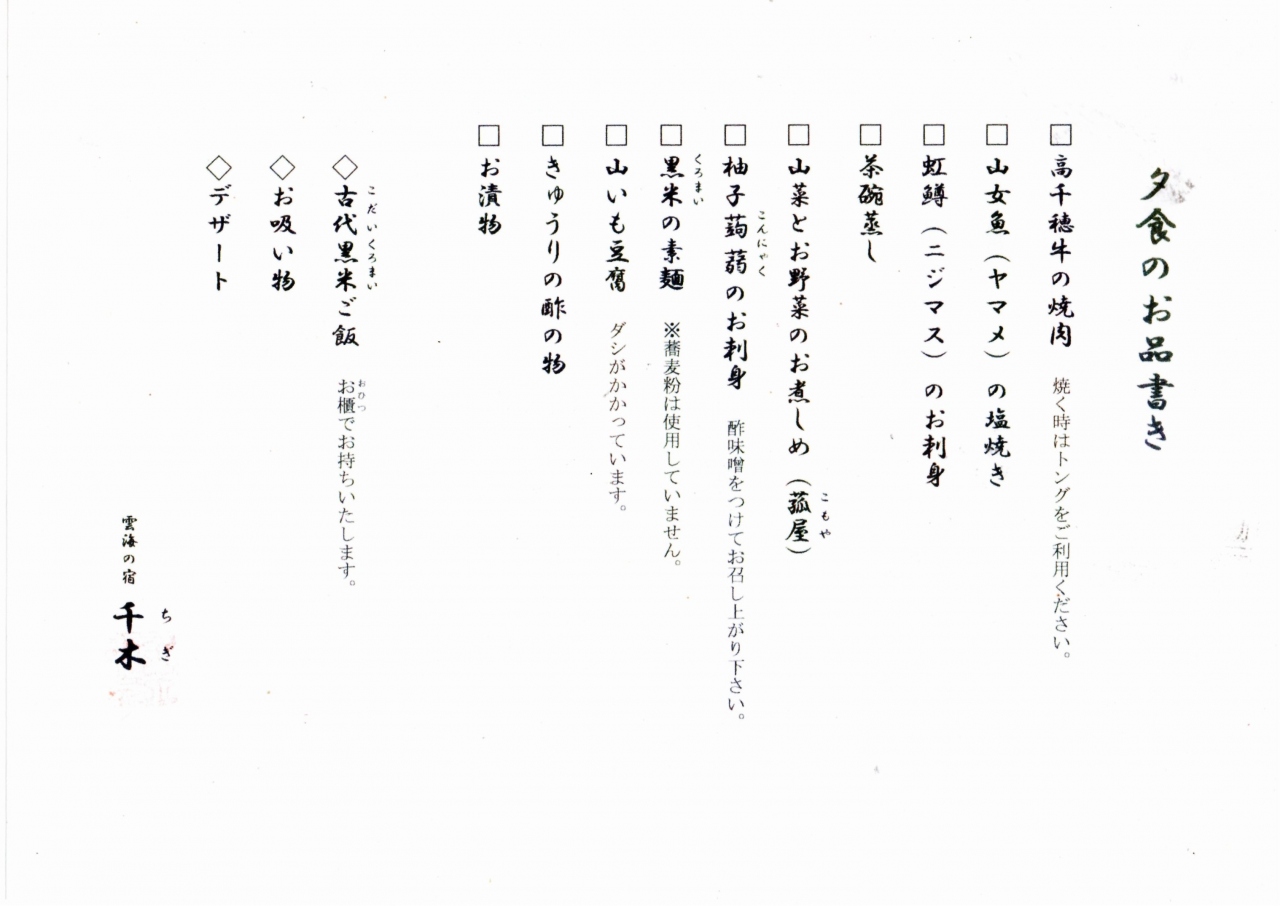 夕食のお品書き
□高千穂牛の焼肉 焼く時はトングをご利用ください。
□山女魚(ヤマメ)の塩焼き
□虹鱒(ニジマス)のお刺身
□茶碗蒸し
□山菜とお野菜のお煮しめ(菰屋)
こもや
□柚子蒟蒻のお刺身 酢味噌をつけてお召し上がり下さい。
こんにゃく
□黒米の素麺 ※蕎麦粉は使用していません。
くろまい
□山いも豆腐 ダシがかかっています。
□きゅうりの酢の物
□お漬物
◇古代黒米ご飯 お櫃でお持ちいたします。
こだいくろまい おひつ
◇お吸い物
◇デザート
雲海の宿 千木
ちぎ